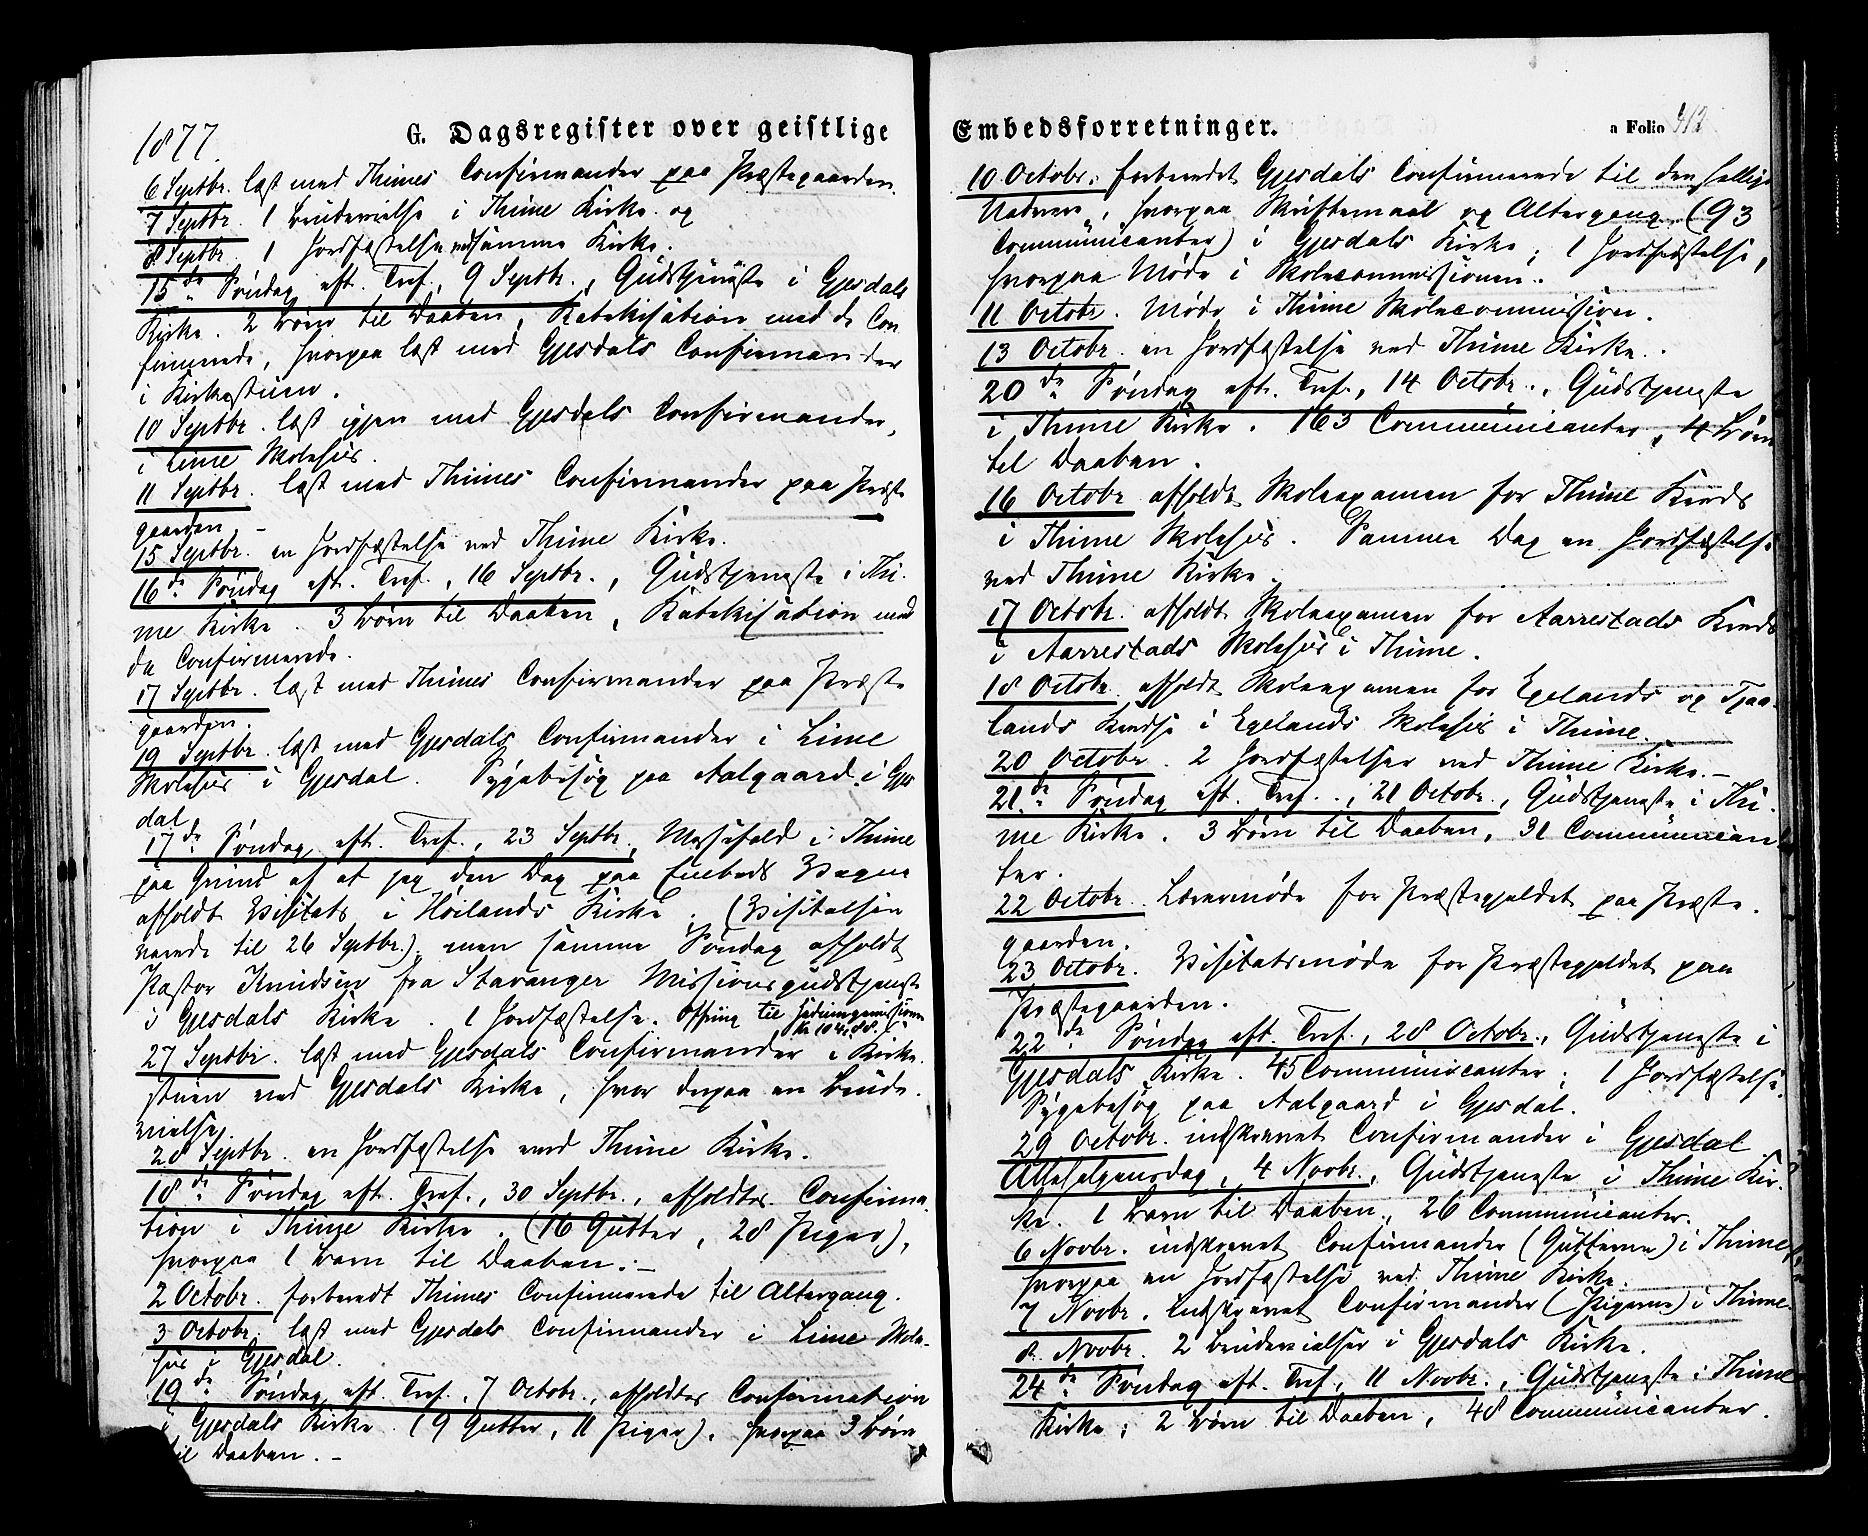 1877.
G. Dagsregister over geistlige
6 Septbr. læst med Thimes Confirmander paa Præstegaarden.
7 Septbr. 1 Brudevielse i Thime Kirke og
8 Septbr. 1 Jordfæstelse ved samme Kirke.
15de Søndag eft. Tref., 9 Septbr., Gudstjeneste i Gjesdals
Kirke. 2 Børn til Daaben, Katekisation med de Con
firmerede, hvorpaa læst med Gjesdals Confirmander
i Kirkestuen.
10 Septbr. læst igjen med Gjesdals Confirmander,
i Lime Skolehus.
11 Septbr. læst med Thimes Confirmander paa Præste
gaarden. –
15 Septbr. en Jordfæstelse ved Thime Kirke.
16de Søndag eft. Tref., 16 Septbr., Gudstjeneste i Thi-
me Kirke. 3 Børn til Daaben, Katekisation med
de Confirmerede.
17 Septbr. læst med Thimes Confirmander paa Præste
gaarden.
19 Septbr. læst med Gjesdals Confirmander i Lime
Skolehus i Gjesdal. Sygebesøg paa Aalgaard i Gjes
dal
17de Søndag eft. Tref., 23 Septbr., Messefald i Thime
paa Grund af at jeg den Dag paa Embeds Vegne
afholdt Visitats i Høilands Kirke. (Visitatsen
varede til 26 Septbr.), men samme Søndag afholdt
Pastor Knudsen fra Stavanger Missionsgudstjeneste
i Gjesdals Kirke. 1 Jordfæstelse. Offring til Hedningemissionen
Kr 104,88.
27 Septbr. læst med Gjesdals Confirmander i Kirke-
stuen ved Gjesdals Kirke, hvor derpaa en Brude-
vielse.
28 Septbr. en Jordfæstelse ved Thime Kirke.
18de Søndag eft. Tref., 30 Septbr., afholdtes Confirma-
tion i Thime Kirke. (16 Gutter, 28 Piger),
hvorpaa 1 Barn til Daaben. –
2 Octobr. forberedt Thimes Confirmerede til Altergang.
3 Octobr. læst med Gjesdals Confirmander i Lime Skole-
hus i Gjesdal.
19de Søndag eft. Tref., 7 Octobr., afholdtes Confirmation
i Gjesdals Kirke (9 Gutter, 11 Piger), hvorpaa 3 Børn
til Daaben. –
Embedsforretninger.
a Folio 412
10 Octobr. forberedet Gjesdals Confirmerede til den hellige
Nadvere, hvorpaa Skriftemaal og Altergang (93
Communicanter) i Gjesdals Kirke; 1 Jordfæstelse,
hvorpaa Møde i Skolecommissionen.
11 Octobr. Møde i Thime Skolecommission.
13 Octobr. en Jordfæstelse ved Thime Kirke.
20de Søndag eft. Tref., 14 Octobr., Gudstjeneste
i Thime Kirke. 163 Communicanter, 4 Børn
til Daaben.
16 Octobr. afholdt Skoleexamen for Thime Kreds
i Thime Skolehus. Samme Dag en Jordfæstelse
ved Thime Kirke.
17 Octobr. afholdt Skoleexamen for Aarrestads Kreds
i Aarrestads Skolehus i Thime.
18 Octobr. afholdt Skoleexamen for Egelands og Tjaa-
lands Kredse i Egelands Skolehus i Thime.
20 Octobr. 2 Jordfæstelser ved Thime Kirke. –
21de Søndag eft. Tref., 21 Octobr., Gudstjeneste i Thi-
me Kirke. 3 Børn til Daaben, 31 Communican
ter.
22 Octobr. Lærermøde for Præstegjeldet paa Præste-
gaarden.
23 Octobr. Visitatsmøde for Præstegjeldet paa
Præstegaarden.
22de Søndag eft. Tref., 28 Octobr., Gudstjeneste i
Gjesdals Kirke. 45 Communicanter; 1 Jordfæstelse.
Sygebesøg paa Aalgaard i Gjesdal.
29 Octobr. indskrevet Confirmander i Gjesdal
Allehelgensdag, 4 Novbr., Gudstjeneste i Thime Kir-
ke. 1 Barn til Daaben, 26 Communicanter.
6 Novbr. indskrevet Confirmander (Gutterne) i Thime
hvorpaa en Jordfæstelse ved Thime Kirke.
7 Novbr. Indskrevet Confirmander (Pigerne) i Thime
8 Novbr. 2 Brudevielser i Gjesdals Kirke.
24de Søndag eft. Tref., 11 Novbr., Gudstjeneste i Thime
Kirke; 2 Børn til Daaben, 48 Communicanter.